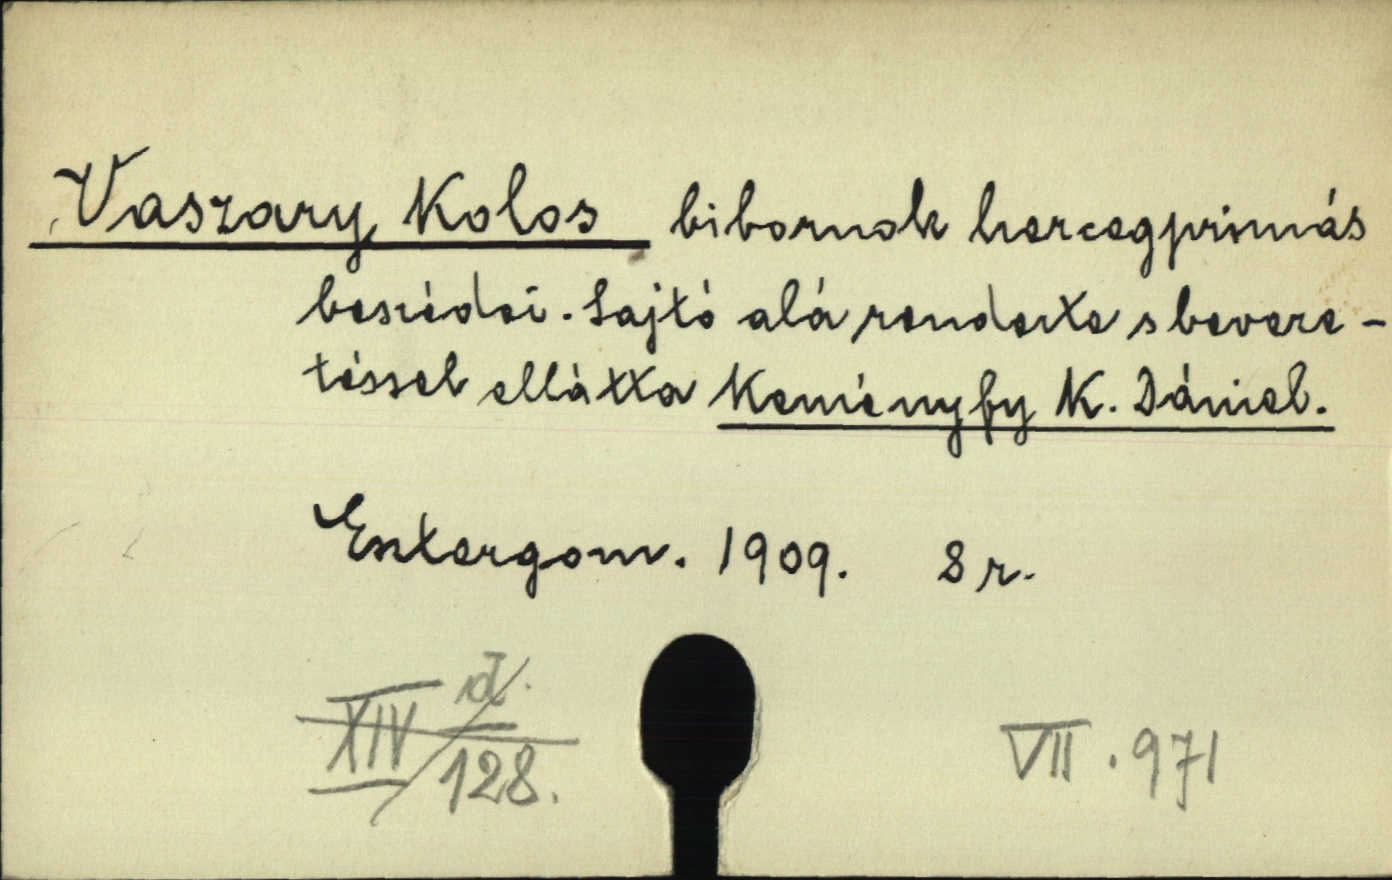 Vaszary Kolos bibornok hercegprimás
beszédei. Sajtó alá rendezte s beveze-
téssel ellátta Keményfy K. Dániel.
Esztergom. 1909. 8 r.
XIV 128.
VII. 971